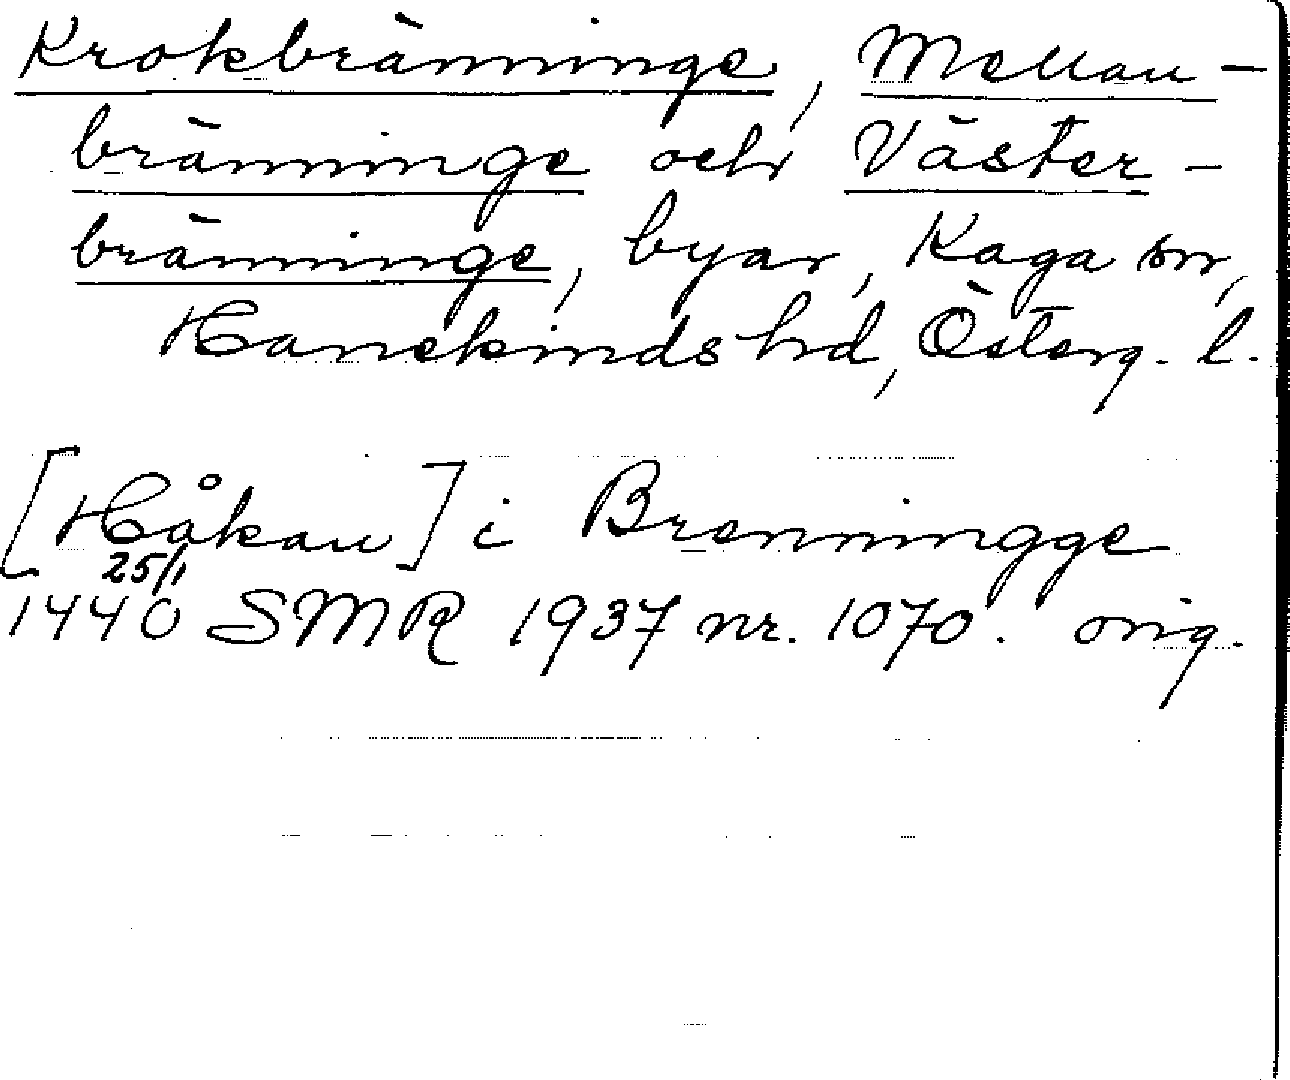 Krokbränninge, Mellan-
bränninge och Väster-
bränninge, byar, Kaga sn,
Hanekinds hd, Österg. l.
[Håkan] i Brenningge
25/1
1440 SMR 1937 nr. 1070. orig.